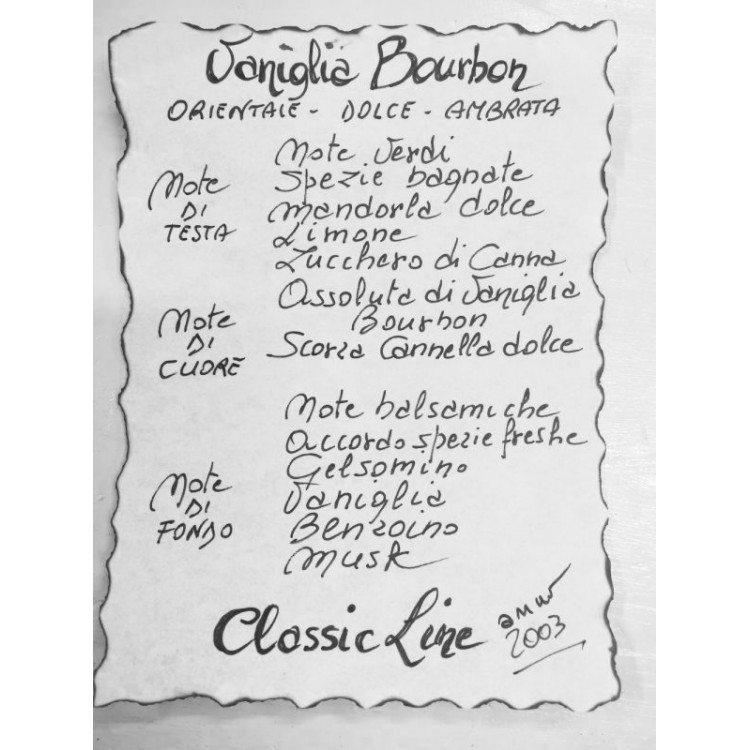 Vaniglia Bourbon
ORIENTALE - DOLCE - AMBRATA
Note Verdi
Spezie bagnate
Mandorla dolce
Limone
Zucchero di Canna
Note
DI
TESTA
Assoluta di Vaniglia
Bourbon
Scorza Cannella dolce
Note
DI
CUORE
Note balsamiche
Accordo spezie freshe
Gelsomino
Vaniglia
Benzoino
Musk
Note
DI
FONDO
Classic Line
2003